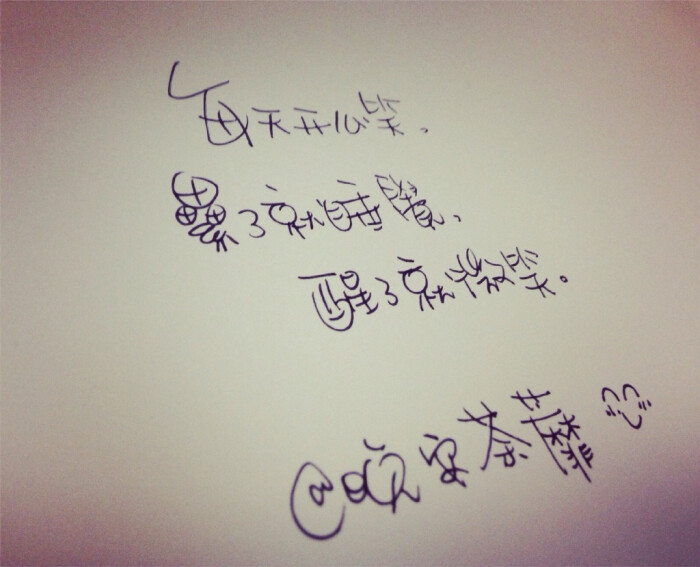 每天开心笑,
纍了就睡覺,
醒了就微笑。
@晚安荼蘼